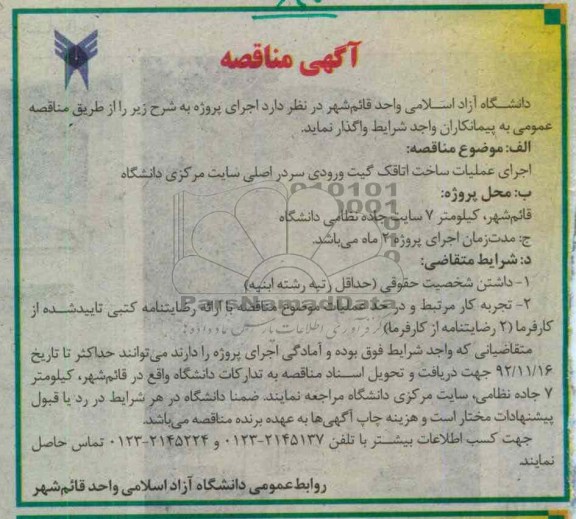 آگهی مناقصه
دانشگاه آزاد اسلامی واحد قائم‌شهر در نظر دارد اجرای پروژه به شرح زیر را از طریق مناقصه
عمومی به پیمانکاران واجد شرایط واگذار نماید.
الف: موضوع مناقصه:
اجرای عملیات ساخت اتاقک گیت ورودی سردر اصلی سایت مرکزی دانشگاه
ب: محل پروژه:
قائم‌شهر، کیلومتر ۷ سایت جاده نظامی دانشگاه
ج: مدت‌زمان اجرای پروژه ۲ ماه می‌باشد.
د: شرایط متقاضی:
۱- داشتن شخصیت حقوقی (حداقل رتبه رشته ابنیه)
ParsNamadData
۲- تجربه کار مرتبط و در حد عملیات موضوع مناقصه با ارائه رضایتنامه کتبی تاییدشده از
کارفرما (۲ رضایتنامه از کارفرما)
متقاضیانی که واجد شرایط فوق بوده و آمادگی اجرای پروژه را دارند می‌توانند حداکثر تا تاریخ
۹۲/۱۱/۱۶ جهت دریافت و تحویل اسناد مناقصه به تدارکات دانشگاه واقع در قائم‌شهر، کیلومتر
۷ جاده نظامی، سایت مرکزی دانشگاه مراجعه نمایند. ضمنا دانشگاه در هر شرایط در رد یا قبول
پیشنهادات مختار است و هزینه چاپ آگهی‌ها به عهده برنده مناقصه می‌باشد.
جهت کسب اطلاعات بیشتر با تلفن ۲۱۴۵۱۳۷-۰۱۲۳ و ۲۱۴۵۲۲۴-۰۱۲۳ تماس حاصل
نمایند.
روابط عمومی دانشگاه آزاد اسلامی واحد قائم‌شهر